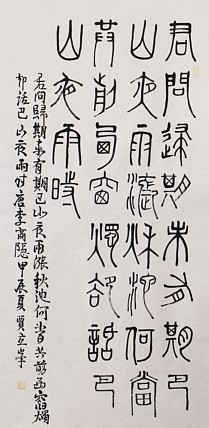 君問歸期未有期巴
山夜雨漲秋池何當
共剪西窗燭卻話巴
山夜雨時
君问歸期未有期巴山夜雨漲秋池何当共剪西窗燭
却話巴山夜雨时唐李商隱甲辰夏賈立